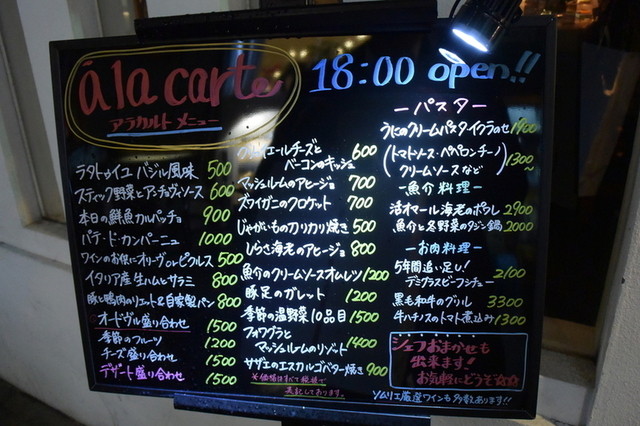 à la carte
アラカルト メニュー
18:00 open!!
ラタトゥイユ バジル風味 500
スティック野菜とアンチョヴィソース 600
本日の鮮魚カルパッチョ 900
パテ・ド・カンパーニュ 1000
ワインのお供にオリーヴorピクルス 500
イタリア産生ハムとサラミ 800
豚と鴨肉のリエット&自家製パン 800
オードヴル盛り合わせ 1500
季節のフルーツ 1200
チーズ盛り合わせ 1500
デザート盛り合わせ 1500
エールチーズと
ベーコンのキッシュ 600
マッシュルームのアヒージョ 700
ズワイガニのクロケット 700
じゃがいものカリカリ焼き 500
しらさ海老のアヒージョ 800
魚介のクリームソースオムレツ 1200
豚足のガレット 1200
季節の温野菜10品目 1500
フォアグラと
マッシュルームのリゾット 1400
サザエのエスカルゴバター焼き 900
※価格はすべて税抜で
表記しております。
ーパスター
うにのクリームパスタ イクラのせ 1900
(トマトソース・ペペロンチーノ
クリームソースなど) 1300~
ー魚介料理ー
活オマール海老のポワレ 2900
魚介と冬野菜のタジン鍋 2000
ーお肉料理ー
5年間追い足し!
デミグラスビーフシチュー 2100
黒毛和牛のグリル 3300
牛ハチノスのトマト煮込み 1300
シェフおまかせも
出来ます!
お気軽にどうぞ☆☆
ソムリエ厳選ワインも多数あります!!